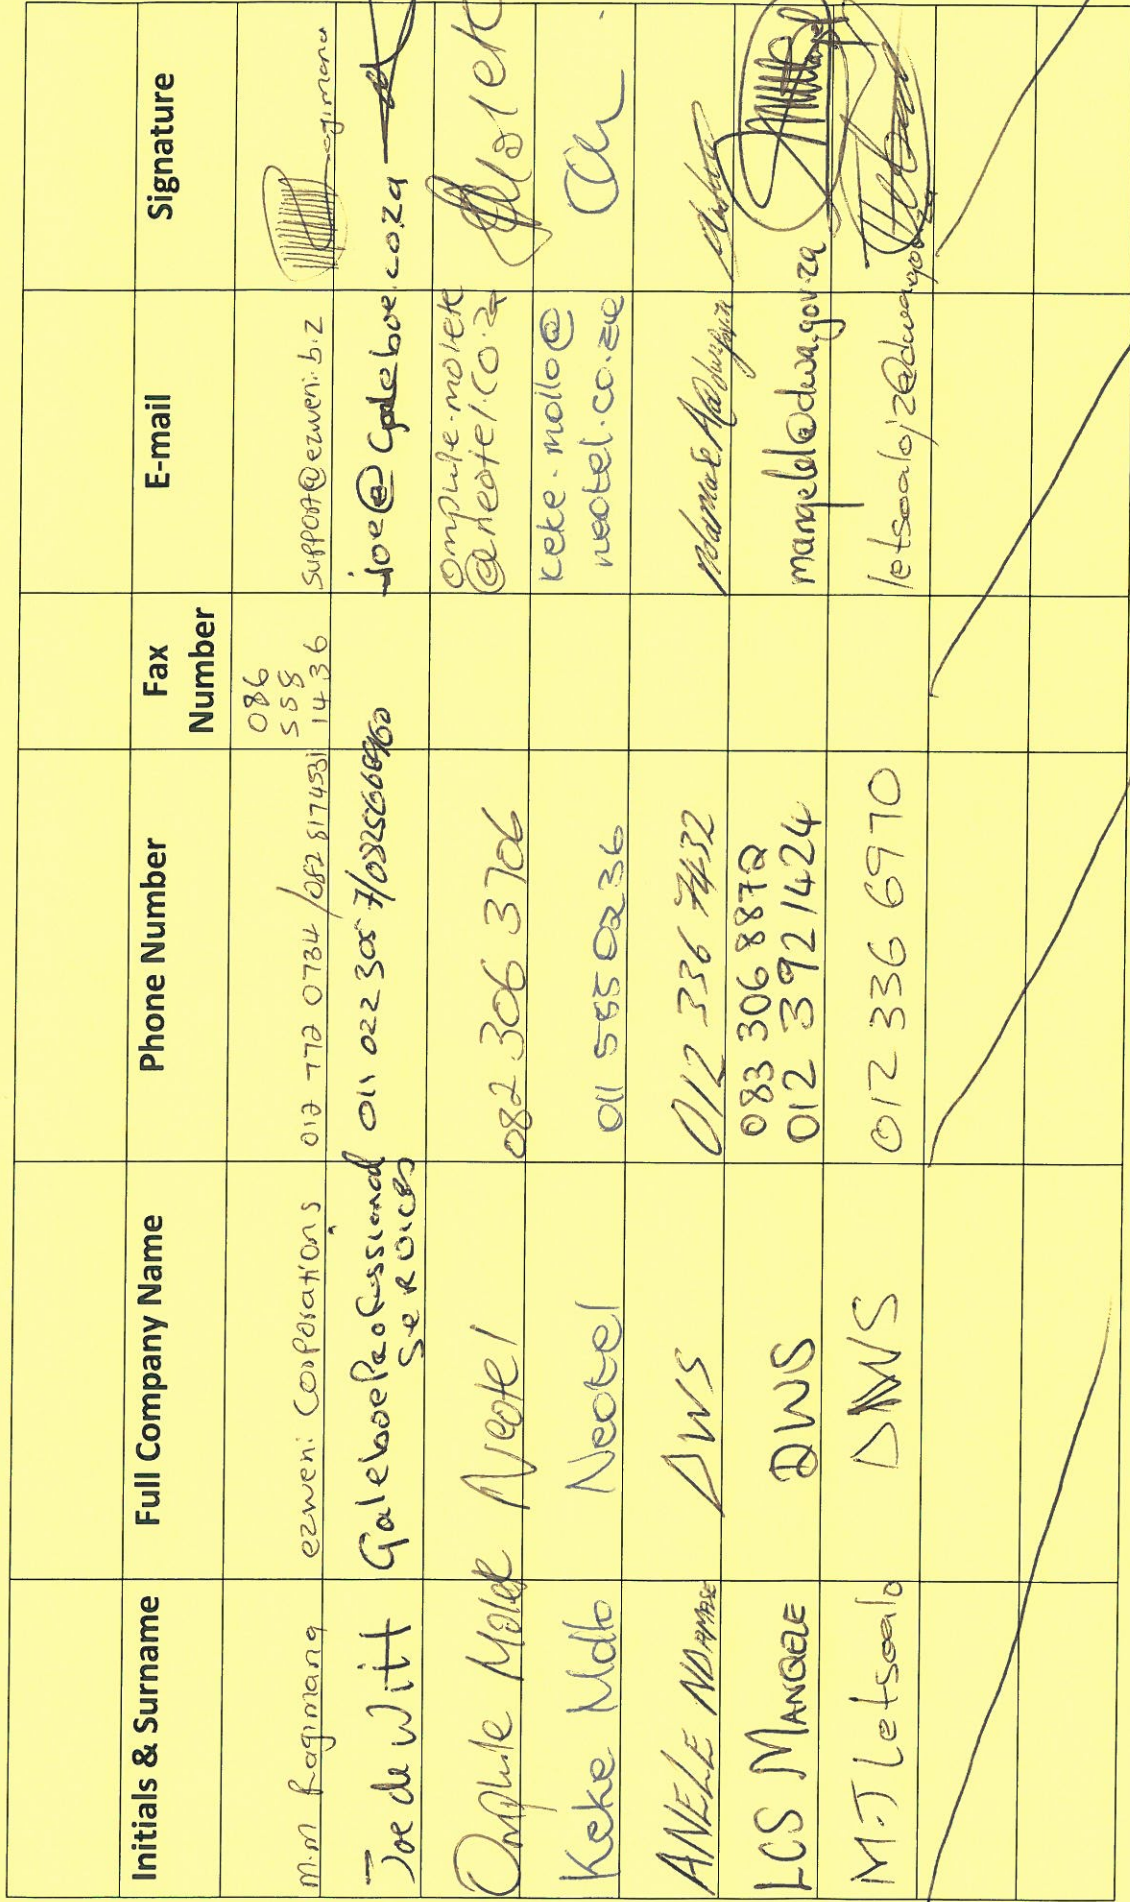 Initials & Surname Full Company Name Phone Number Fax Number E-mail Signature
M.M Ragimana ezweni CorpOrations 012 772 0734 / 082 8174531 086 558 1436 support@ezweni.b.z
Joe de Witt Galeboe Professional Services 011 022 3057/ joe@galeboe.co.za
Omphile Molek Neotel 082 306 3706 Omphile.molek@neotel.co.za
Keke Mollo Neotel 011 585 0236 keke.mollo@neotel.co.za
ANELE NDAMASE DWS 012 336 7432
LCS MANQELE DWS 083 306 8872 012 392 1424 manqelel@dwa.gov.za
M.J Letsoalo DWS 012 336 6970 letsoaloj2@dwa.gov.za